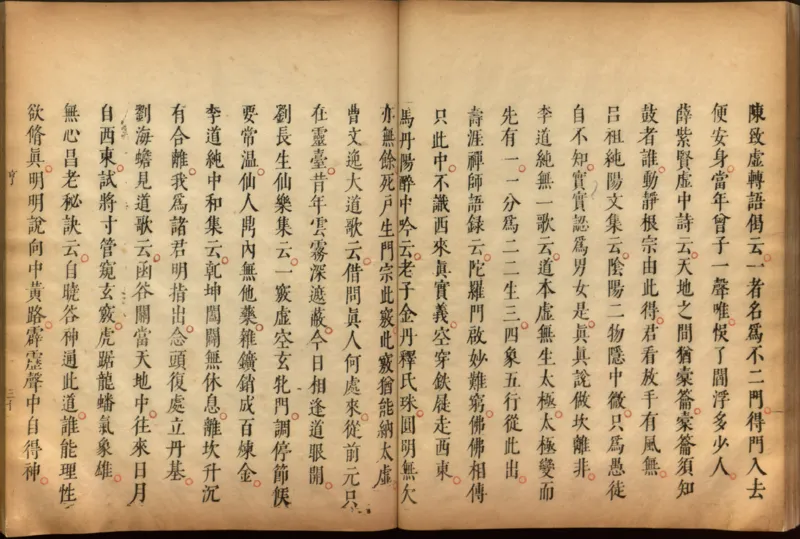 陳致虛轉語偈云一者名爲不二門得門入去
便安身當年曾子一聲唯悞了閻浮多少人
薛紫賢虛中詩云天地之間猶橐籥橐籥須知
鼓者誰動靜根宗由此得君看放手有風無
呂祖純陽文集云陰陽二物隱中微只爲愚徒
自不知實實認爲男女是眞眞說做坎離非
李道純無一歌云道本虛無生太極太極變而
先有一一分爲二二生三四象五行從此出
壽涯禪師語錄云陀羅門啟妙難窮佛佛相傳
只此中不識西來眞實義空穿鉄屣走西東
馬丹陽醉中吟云老子金丹釋氏珠圓明無欠
亦無餘死戸生門宗此竅此竅猶能納太虛
曹文逸大道歌云借問眞人何處來從前元只
在靈臺昔年雲霧深遮蔽今日相逢道眼開
劉長生仙樂集云一竅虛空玄牝門調停節候
要常温仙人鼎內無他藥雜鑛銷成百煉金
李道純中和集云乾坤闔闢無休息離坎升沉
有合離我爲諸君明指出念頭復處立丹基
劉海蟾見道歌云函谷關當天地中往來日月
自西東試將寸管窺玄竅虎踞龍蟠氣象雄
無心昌老秘訣云自曉谷神通此道誰能理性
欲脩眞明明說向中黃路霹靂聲中自得神